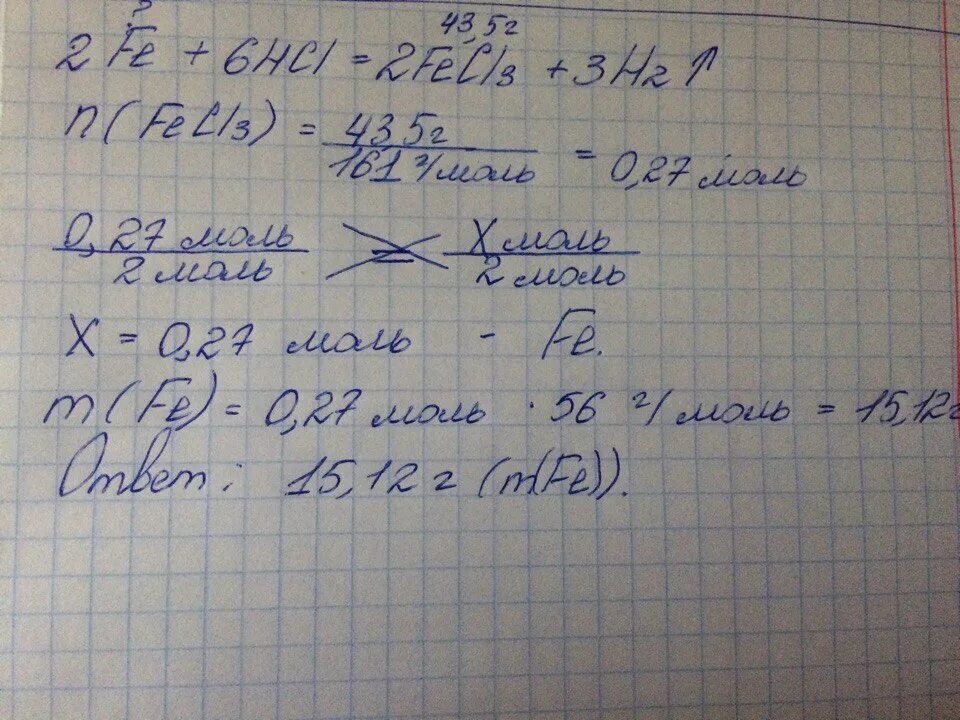 ? 43,5г
2Fe + 6HCl = 2FeCl3 + 3H2↑
n(FeCl3) = 43,5г / 161 г/моль = 0,27 моль
0,27 моль / 2 моль = X моль / 2 моль
X = 0,27 моль - Fe.
m(Fe) = 0,27 моль · 56 г/моль = 15,12г
Ответ: 15,12 г (m(Fe)).